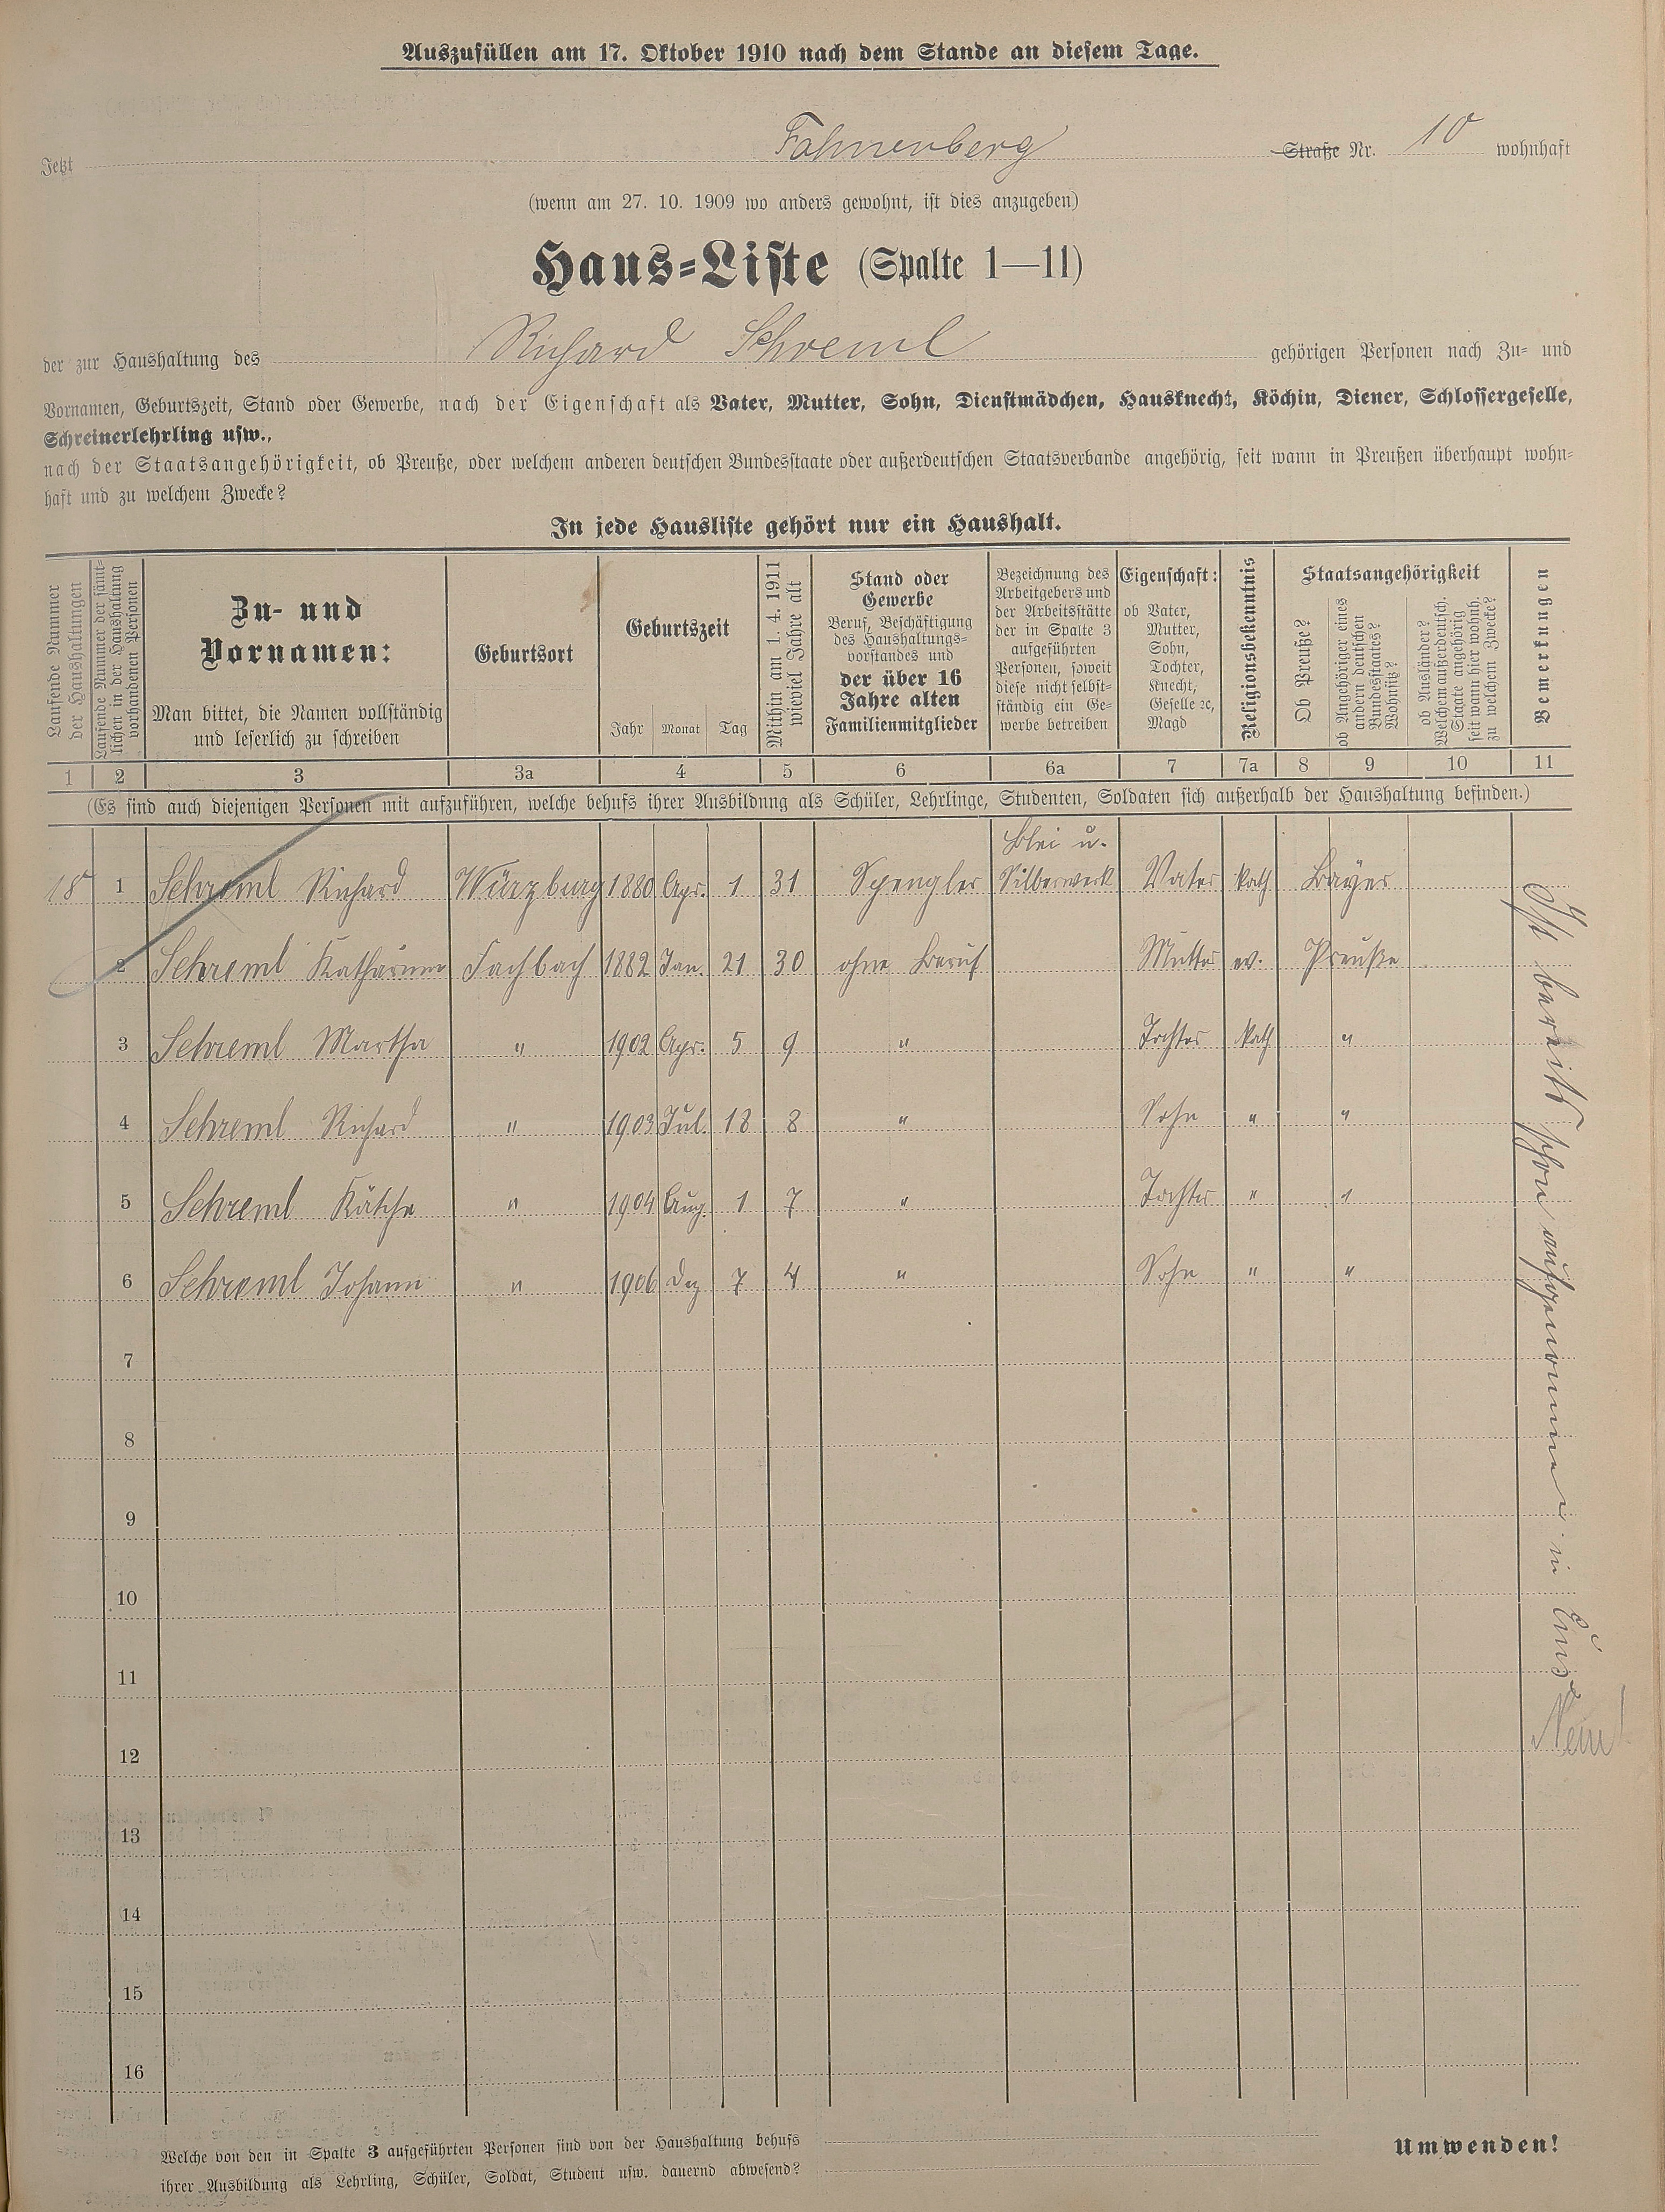 Auszufüllen am 17. Oktober 1910 nach dem Stande an diesem Tage.
Jetzt Fahnenberg Straße Nr. 10 wohnhaft
(wenn am 27. 10. 1909 wo anders gewohnt, ist dies anzugeben)
Haus=Liste (Spalte 1—11)
der zur Haushaltung des Richard Schreml gehörigen Personen nach Zu= und
Vornamen, Geburtszeit, Stand oder Gewerbe, nach der Eigenschaft als Vater, Mutter, Sohn, Dienstmädchen, Hausknecht, Köchin, Diener, Schlossergeselle,
Schreinerlehrling usw.,
nach der Staatsangehörigkeit, ob Preuße, oder welchem anderen deutschen Bundesstaate oder außerdeutschen Staatsverbande angehörig, seit wann in Preußen überhaupt wohn=
haft und zu welchem Zwecke?
In jede Hausliste gehört nur ein Haushalt.
Laufende Nummer
der Haushaltungen
Laufende Nummer der sämt=
lichen in der Haushaltung
vorhandenen Personen
Zu- und
Vornamen:
Man bittet, die Namen vollständig
und leserlich zu schreiben
Geburtsort
Geburtszeit
Jahr Monat Tag
Mithin am 1. 4. 1911
wieviel Jahre alt
Stand oder
Gewerbe
Beruf, Beschäftigung
des Haushaltungs=
vorstandes und
der über 16
Jahre alten
Familienmitglieder
Bezeichnung des
Arbeitgebers und
der Arbeitsstätte
der in Spalte 3
aufgeführten
Personen, soweit
diese nicht selbst=
ständig ein Ge=
werbe betreiben
Eigenschaft:
ob Vater,
Mutter,
Sohn,
Tochter,
Knecht,
Geselle ꝛc,
Magd
Religionsbekenntnis
Staatsangehörigkeit
Ob Preuße?
ob Angehöriger eines
andern deutschen
Bundesstaates?
Wohnsitz?
ob Ausländer?
Welchem außerdeutsch.
Staate angehörig
seit wann hier wohnh.
zu welchem Zwecke?
Bemerkungen
1 2 3 3a 4 5 6 6a 7 7a 8 9 10 11
(Es sind auch diejenigen Personen mit aufzuführen, welche behufs ihrer Ausbildung als Schüler, Lehrlinge, Studenten, Soldaten sich außerhalb der Haushaltung befinden.)
18 1 Schreml Richard Würzburg 1880 Apr. 1 31 Spengler Blei u. Silberwerk Vater kath Bayer
2 Schreml Katharina Fachbach 1882 Jan. 21 30 ohne Beruf Mutter ev. Preuße
3 Schreml Martha " 1902 Apr. 5 9 " Tochter kath "
4 Schreml Richard " 1903 Jul. 18 8 " Sohn " "
5 Schreml Käthe " 1904 Aug. 1 7 " Tochter " "
6 Schreml Johann " 1906 Dez 7 4 " Sohn " "
7
8
9
10
11
12
13
14
15
16
Ist bereits schon aufgenommen in Ems
Nein!
Welche von den in Spalte 3 aufgeführten Personen sind von der Haushaltung behufs
ihrer Ausbildung als Lehrling, Schüler, Soldat, Student usw. dauernd abwesend?
Umwenden!